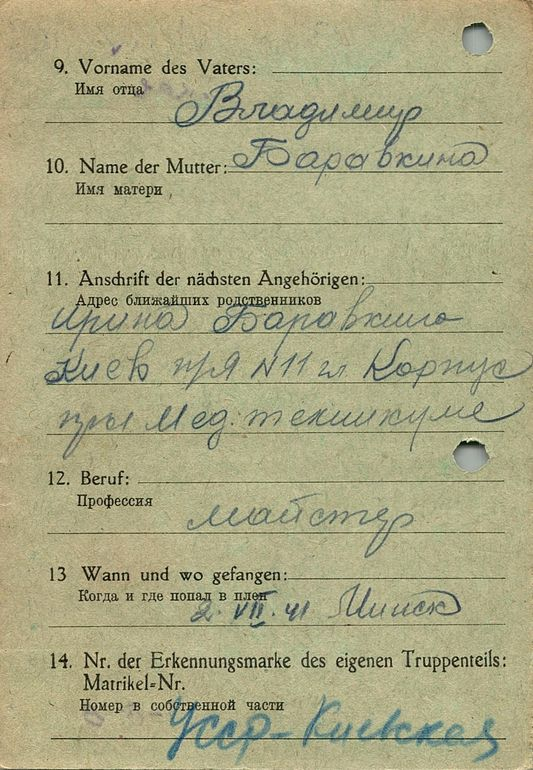 9. Vorname des Vaters:
Имя отца
Владимир
10. Name der Mutter: Баравкина
Имя матери
11. Anschrift der nächsten Angehörigen:
Адрес ближайших родственников
Ирина Баравкина
Киев N 11 гл Корпус
при Мед. техникуме
12. Beruf:
Профессия
майстер
13 Wann und wo gefangen:
Когда и где попал в плен
2. VII. 41 Минск
14. Nr. der Erkennungsmarke des eigenen Truppenteils:
Matrikel=Nr.
Номер в собственной части
Усср-Киевская